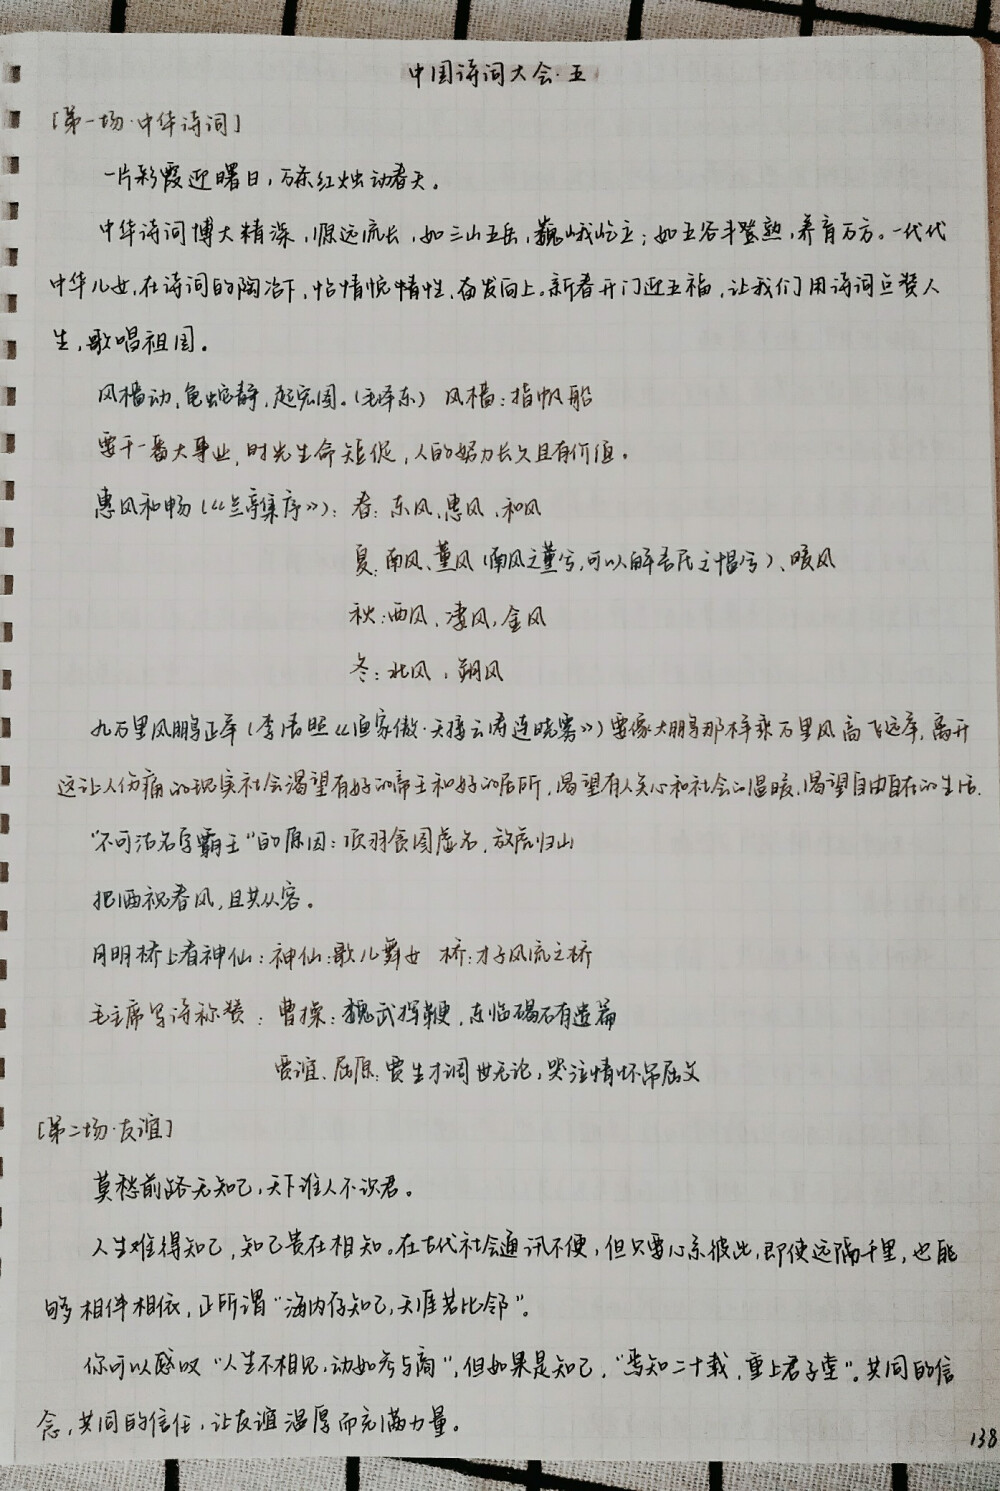 中国诗词大会·五
[第一场·中华诗词]
一片彩霞迎曙日，万条红烛动春天。
中华诗词博大精深，源远流长，如三山五岳，巍峨屹立；如五谷丰登熟，养育万方。一代代
中华儿女，在诗词的陶冶下，怡情悦情性，奋发向上。新春开门迎五福，让我们用诗词点赞人
生，歌唱祖国。
风樯动，龟蛇静，起宏图。（毛泽东） 风樯：指帆船
要干一番大事业，时光生命短促，人的努力长久且有价值。
惠风和畅（《兰亭集序》）：春：东风、惠风、和风
夏：南风、薰风（南风之薰兮，可以解吾民之愠兮）、暖风
秋：西风、凄风，金风
冬：北风，朔风
九万里风鹏正举（李清照《渔家傲·天接云涛连晓雾》）要像大鹏那样乘万里风高飞远举，离开
这让人伤痛的现实社会渴望有好的帝王和好的居所，渴望有人关心和社会的温暖，渴望自由自在的生活.
“不可沽名学霸王”的原因：项羽贪图虚名，放虎归山
把酒祝春风，且共从容。
月明桥上看神仙：神仙：歌儿舞女 桥：才子风流之桥
毛主席写诗称赞：曹操：魏武挥鞭，东临碣石有遗篇
贾谊、屈原：贾生才调世无论，哭泣情怀吊屈文
[第二场·友谊]
莫愁前路无知己，天下谁人不识君。
人生难得知己，知己贵在相知。在古代社会通讯不便，但只要心系彼此，即使远隔千里，也能
够相伴相依，正所谓“海内存知己，天涯若比邻”。
你可以感叹“人生不相见，动如参与商”，但如果是知己，“焉知二十载，重上君子堂”。共同的信
念，共同的信任，让友谊温厚而充满力量。
138